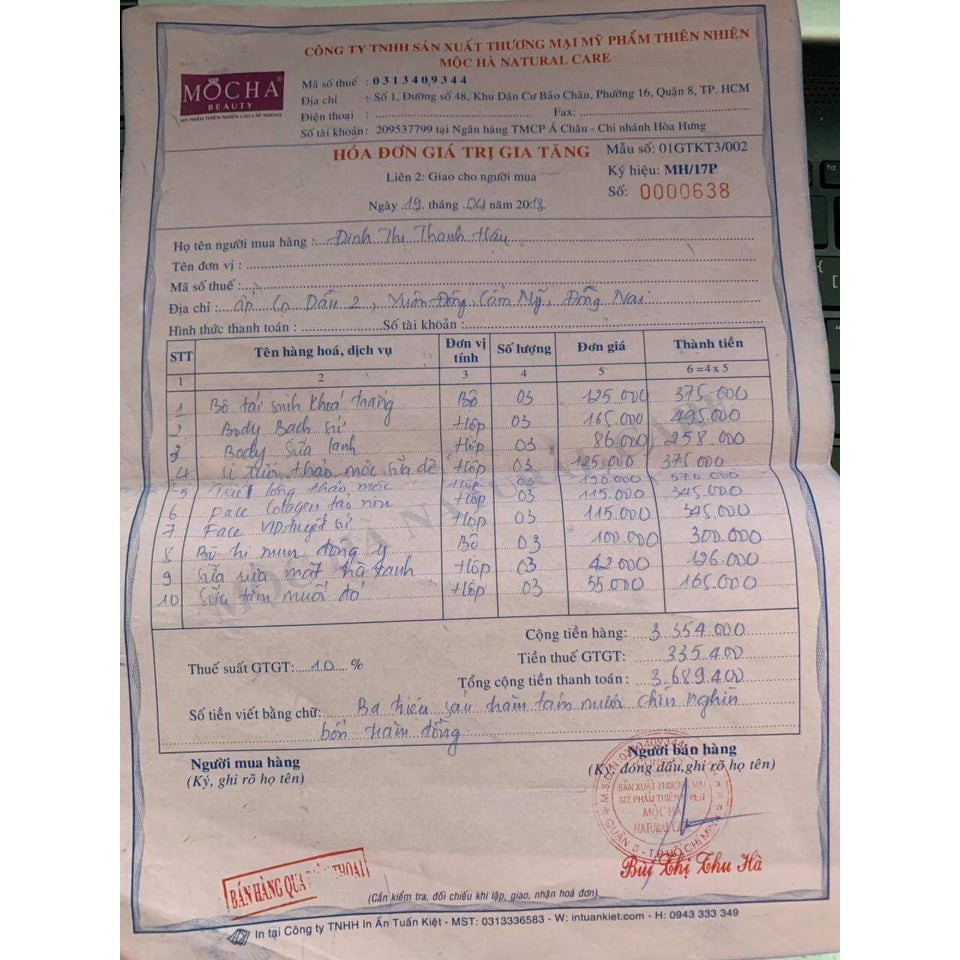 CÔNG TY TNHH SẢN XUẤT THƯƠNG MẠI MỸ PHẨM THIÊN NHIÊN
MỘC HÀ NATURAL CARE
MOCHA®
BEAUTY
MỸ PHẨM THIÊN NHIÊN CAO CẤP MOCHA
Mã số thuế : 0313409344
Địa chỉ : Số 1, Đường số 48, Khu Dân Cư Bảo Châu, Phường 16, Quận 8, TP. HCM
Điện thoại : Fax:
Số tài khoản: 209537799 tại Ngân hàng TMCP Á Châu - Chi nhánh Hòa Hưng
HÓA ĐƠN GIÁ TRỊ GIA TĂNG Mẫu số: 01GTKT3/002
Liên 2: Giao cho người mua Ký hiệu: MH/17P
Số: 0000638
Ngày 19 tháng 04 năm 2018
Họ tên người mua hàng : Đinh Thị Thanh Hậu
Tên đơn vị :
Mã số thuế :
Địa chỉ : ấp Cọ Dầu 2, Xuân Đông, Cẩm Mỹ, Đồng Nai
Hình thức thanh toán : Số tài khoản:
STT Tên hàng hoá, dịch vụ Đơn vị tính Số lượng Đơn giá Thành tiền
1 2 3 4 5 6 = 4 x 5
1 Bộ tái sinh khoá trắng Bộ 03 125.000 375.000
2 Body Bạch sứ Hộp 03 165.000 495.000
3 Body Sữa lạnh Hộp 03 86.000 258.000
4 thảo mộc sữa dê Hộp 03 125.000 375.000
5 Triệt lông thảo mộc Hộp 03
6 Face Colagen tảo non Hộp 03 115.000 345.000
7 Face VIP tuyết sứ Hộp 03 115.000 345.000
8 Bộ trị mụn đông y Bộ 03 100.000 300.000
9 Sữa rửa mặt hà tanh Hộp 03 42.000 126.000
10 Sữa tắm muối đỏ Hộp 03 55.000 165.000
Cộng tiền hàng: 3.354.000
Thuế suất GTGT: 10 % Tiền thuế GTGT: 335.400
Tổng cộng tiền thanh toán : 3.689.400
Số tiền viết bằng chữ: Ba triệu sáu trăm tám mươi chín nghìn
bốn trăm đồng
Người mua hàng Người bán hàng
(Ký, ghi rõ họ tên) (Ký, đóng dấu, ghi rõ họ tên)
SẢN XUẤT THƯƠNG MẠI
MỸ PHẨM THIÊN NHIÊN
MỘC HÀ
NATURAL CARE
QUẬN 8 - TP. HỒ CHÍ MINH
Bùi Thị Thu Hà
BÁN HÀNG QUA ĐIỆN THOẠI
(Cần kiểm tra, đối chiếu khi lập, giao, nhận hoá đơn)
In tại Công ty TNHH In Ấn Tuấn Kiệt - MST: 0313336583 - W: intuankiet.com - H: 0943 333 349